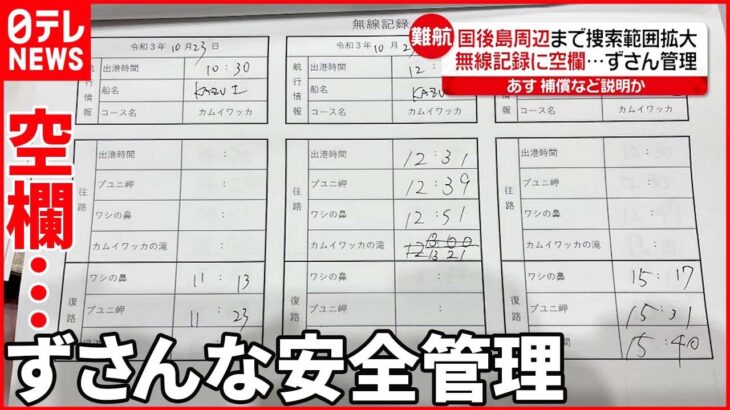 日テレ
NEWS
難航
国後島周辺まで捜索範囲拡大
無線記録に空欄…ずさん管理
あす 補償など説明か
空欄…
無線記録
令和3年 10月 23日
航行情報
出港時間
10:30
船名
KAZU I
コース名
カムイワッカ
往路
出港時間
:
プユニ岬
:
ワシの鼻
:
カムイワッカの滝
:
復路
ワシの鼻
11:13
プユニ岬
11:23
令和3年 10月
航行情報
出港時間
12:
船名
KAZU I
コース名
カムイワッカ
往路
出港時間
12:31
プユニ岬
12:39
ワシの鼻
12:51
カムイワッカの滝
13:21
復路
ワシの鼻
:
プユニ岬
:
:
コース名
カムイワッカ
出港時間
プユニ岬
ワシの鼻
カムイワッカの滝
ワシの鼻
15:17
プユニ岬
15:31
15:40
ずさんな安全管理